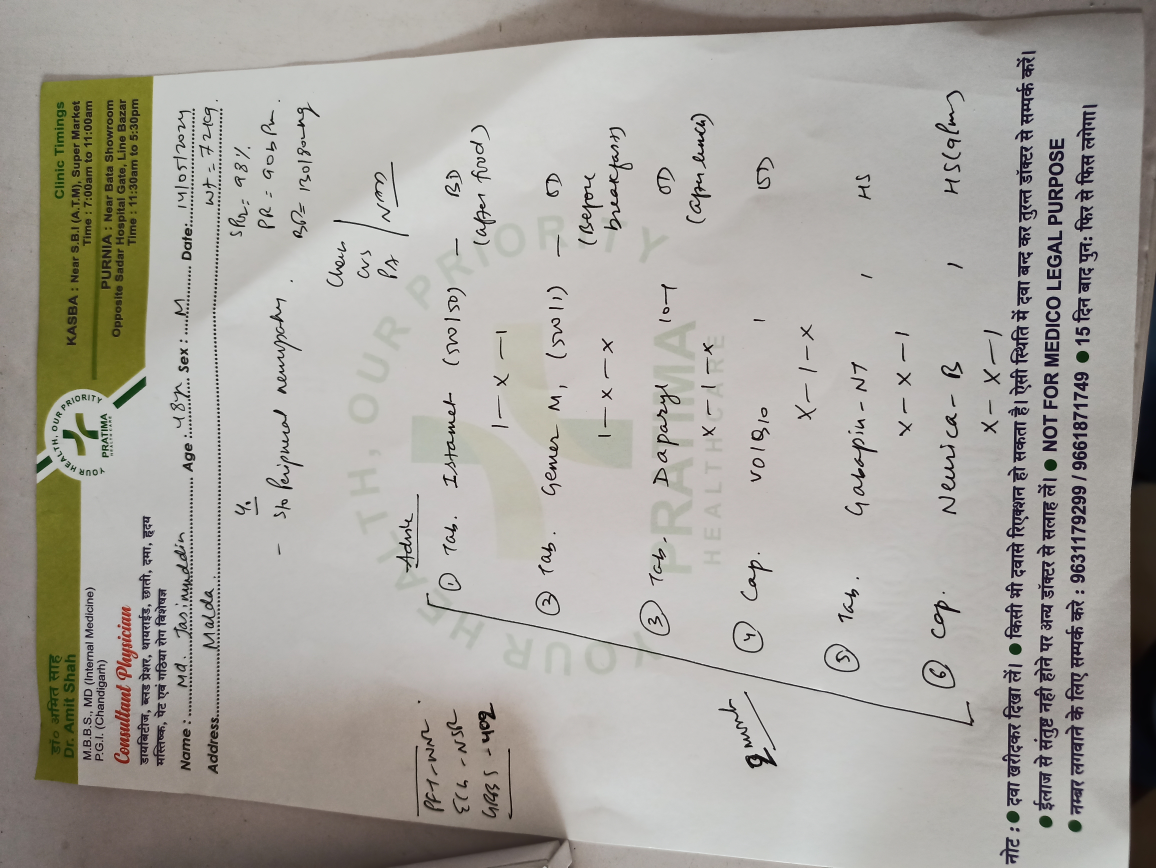 डा० अमित साह
Dr. Amit Shah
M.B.B.S., MD (Internal Medicine)
P.G.I. (Chandigarh)
Consultant Physician
डायबिटीज, ब्लड प्रेशर, थायराईड, छाती, दमा, हृदय
मस्तिष्क, पेट एवं गठिया रोग विशेषज्ञ
YOUR HEALTH, OUR PRIORITY
PRATIMA
Clinic Timings
KASBA : Near S.B.I (A.T.M), Super Market
Time : 7:00am to 11:00am
PURNIA : Near Bata Showroom
Opposite Sadar Hospital Gate, Line Bazar
Time : 11:30am to 5:30pm
Name : Md. Jasimuddin Age : 48yr Sex : M Date: 14/05/2024
Address Malda. wt = 72kg.
SPO2 = 98%
- S/o Peripheral neuropathy. PR = 90bPm.
BP = 130/80mmHg
Chest
CVS
PA
NAD
PFT - WNL
ECG - NSR
GRBS - 402
Advise
① Tab. Istamet (500/50) — BD
(after food)
1 — x — 1
② Tab. Gemer M1 (500/1) — OD
(Before breakfast)
1 — x — x
③ Tab. Daparyl 10-1 OD
(after lunch)
x — 1 — x
④ Cap. VOLB10 1 OD
x — 1 — x
⑤ Tab. Gabapin - NT 1 HS
x — x — 1
⑥ Cap. Neurica - B 1 HS (9pm)
x — x — 1
YOUR HEALTH, OUR PRIORITY
PRATIMA
HEALTHCARE
नोट : ● दवा खरीदकर दिखा लें। ● किसी भी दवासे रिएक्शन हो सकता है। ऐसी स्थिति में दवा बन्द कर तुरन्त डॉक्टर से सम्पर्क करें।
● ईलाज से संतुष्ट नही होने पर अन्य डॉक्टर से सलाह लें। ● NOT FOR MEDICO LEGAL PURPOSE
● नम्बर लगवाने के लिए सम्पर्क करे : 9631179299 / 9661871749 ● 15 दिन बाद पुनः फिर से फिस लगेगा।